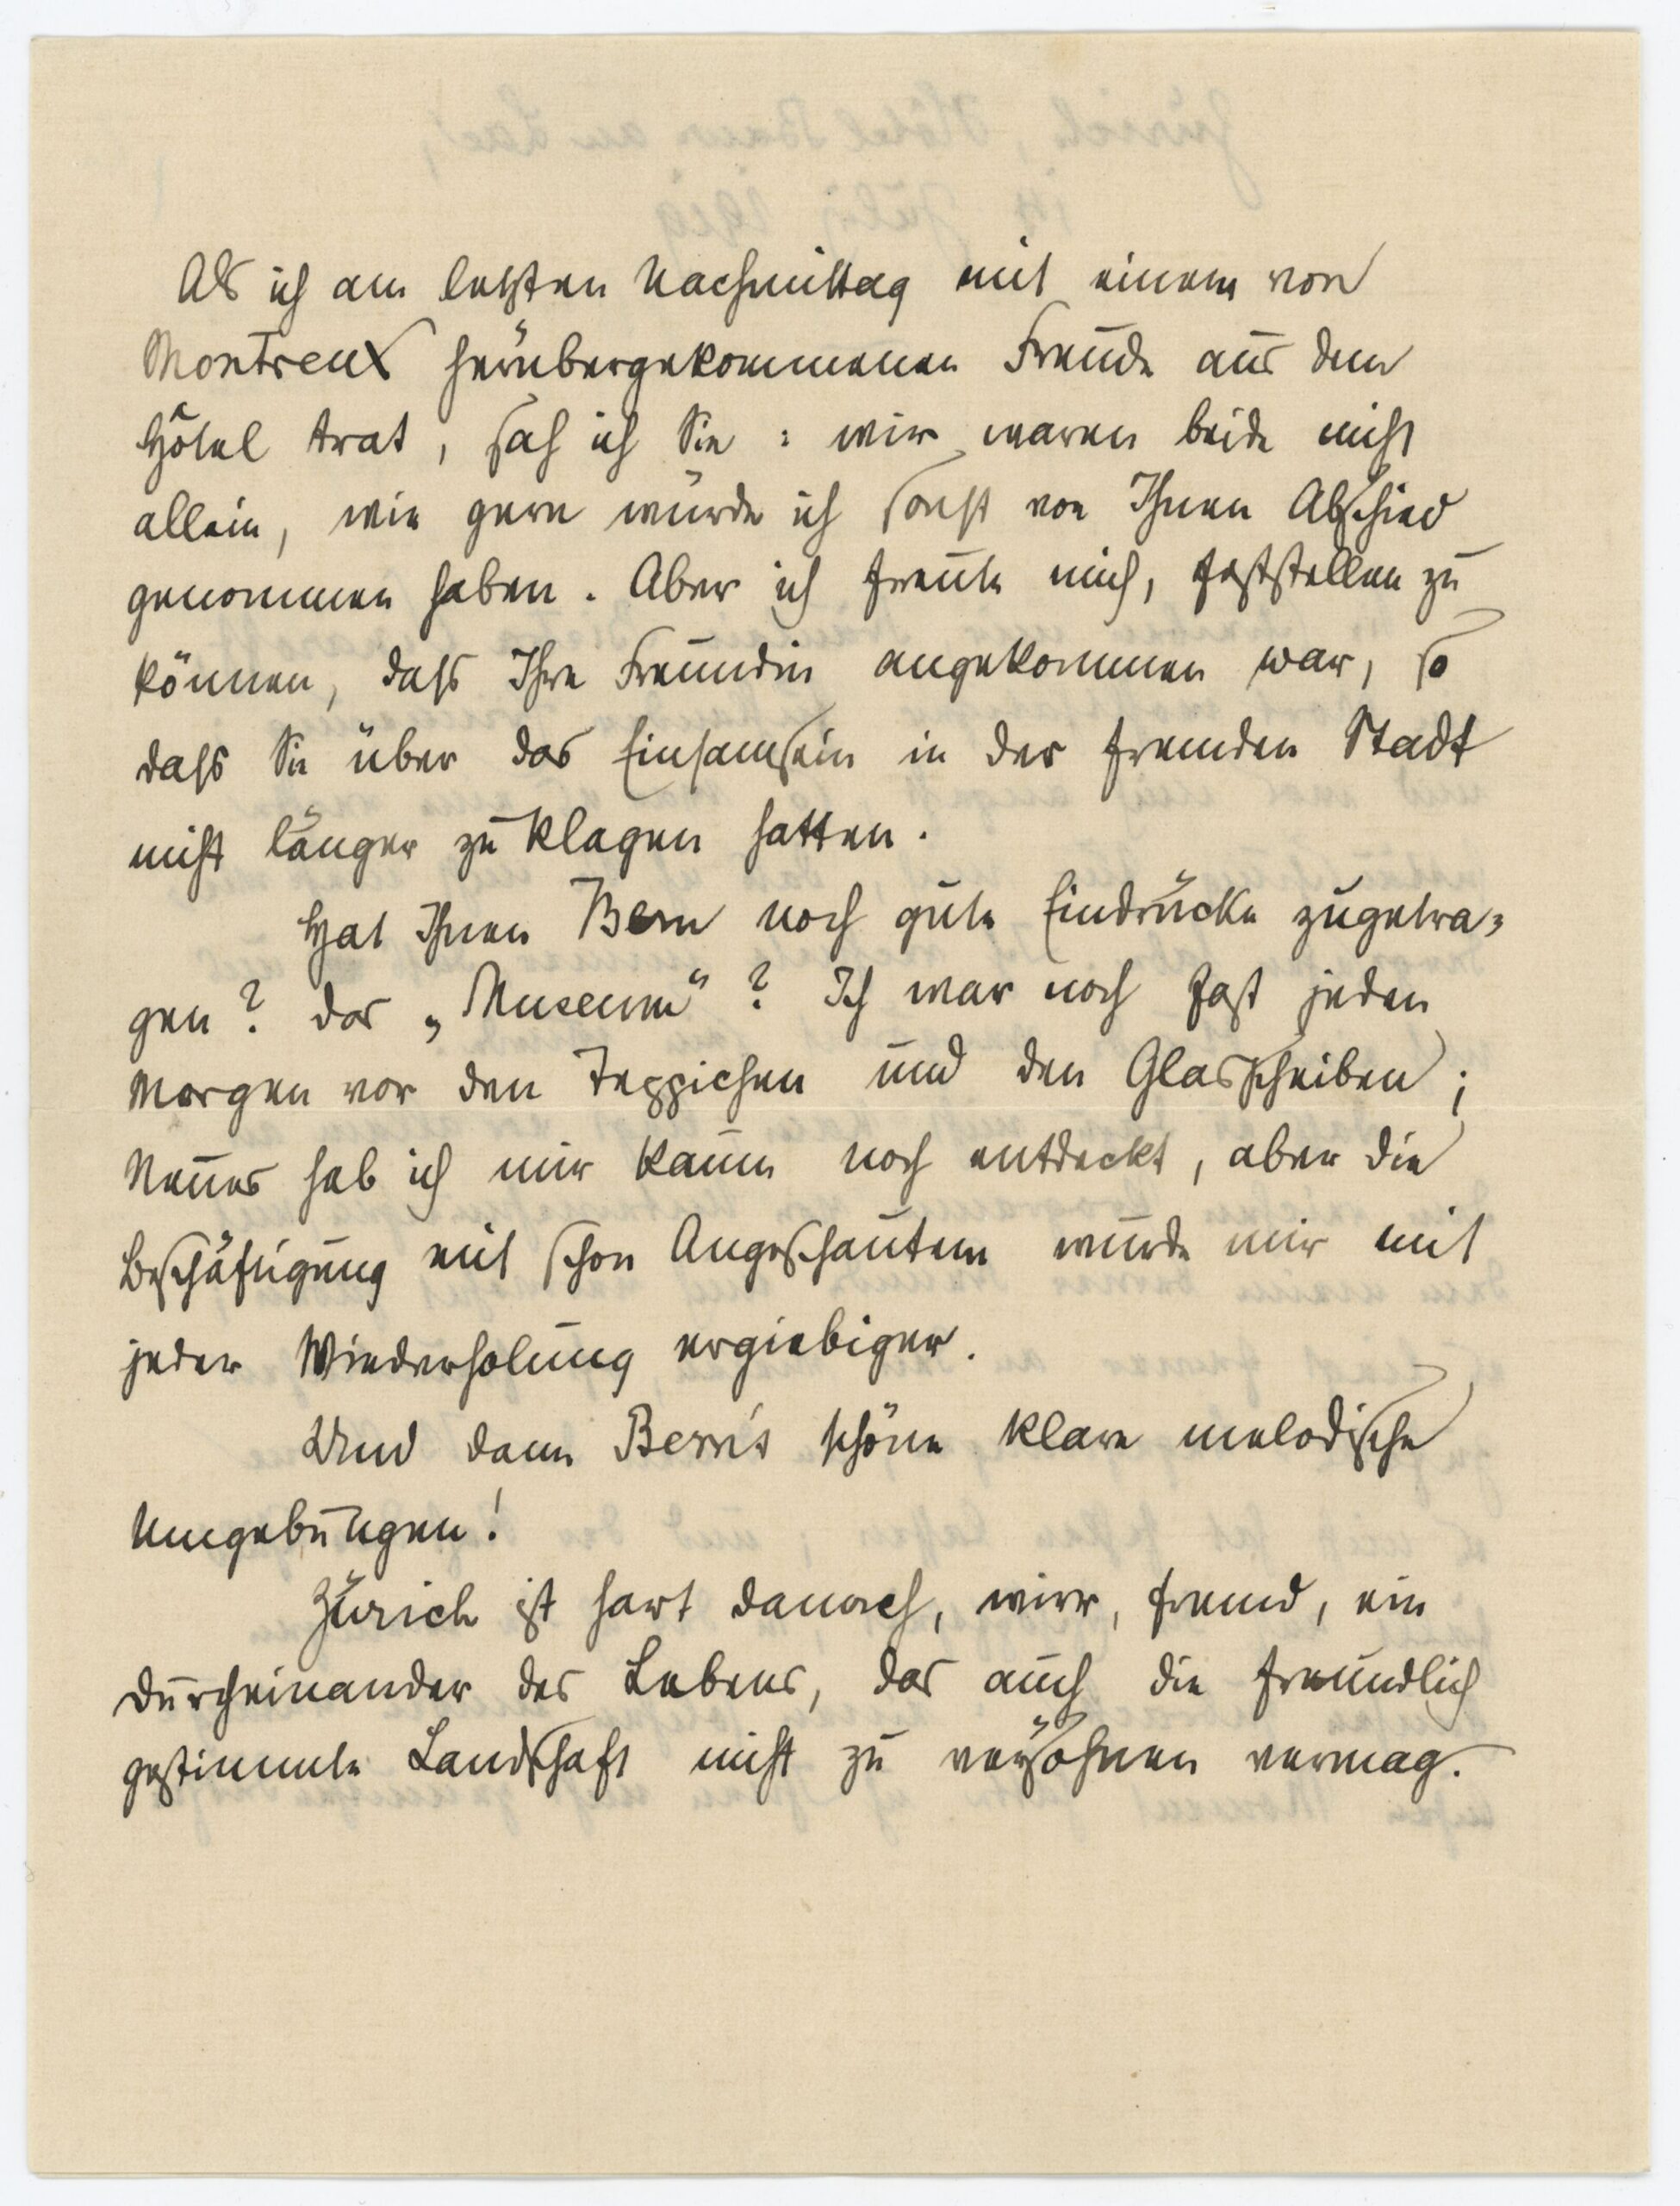 Als ich am letzten Nachmittag mit einem von
Montreux herübergekommenen Freunde aus dem
Hôtel trat, sah ich Sie : wir waren beide nicht
allein, wie gern würde ich sonst von Ihnen Abschied
genommen haben. Aber ich freute mich, feststellen zu
können, dass Ihre Freundin angekommen war, so
dass Sie über das Einsamsein in der fremden Stadt
nicht länger zu klagen hatten.
Hat Ihnen Bern noch gute Eindrücke zugetra=
gen? das „Museum“? Ich war noch fast jeden
Morgen vor den Teppichen und den Glasscheiben ;
Neues hab ich mir kaum noch entdeckt, aber die
Beschäftigung mit schon Angeschautem wurde mir mit
jeder Wiederholung ergiebiger.
Und dann Bern's schöne klare melodische
Umgebungen!
Zürich ist hart danach, wirr, fremd, ein
Durcheinander des Lebens, das auch die freundlich
gestimmte Landschaft nicht zu versöhnen vermag.